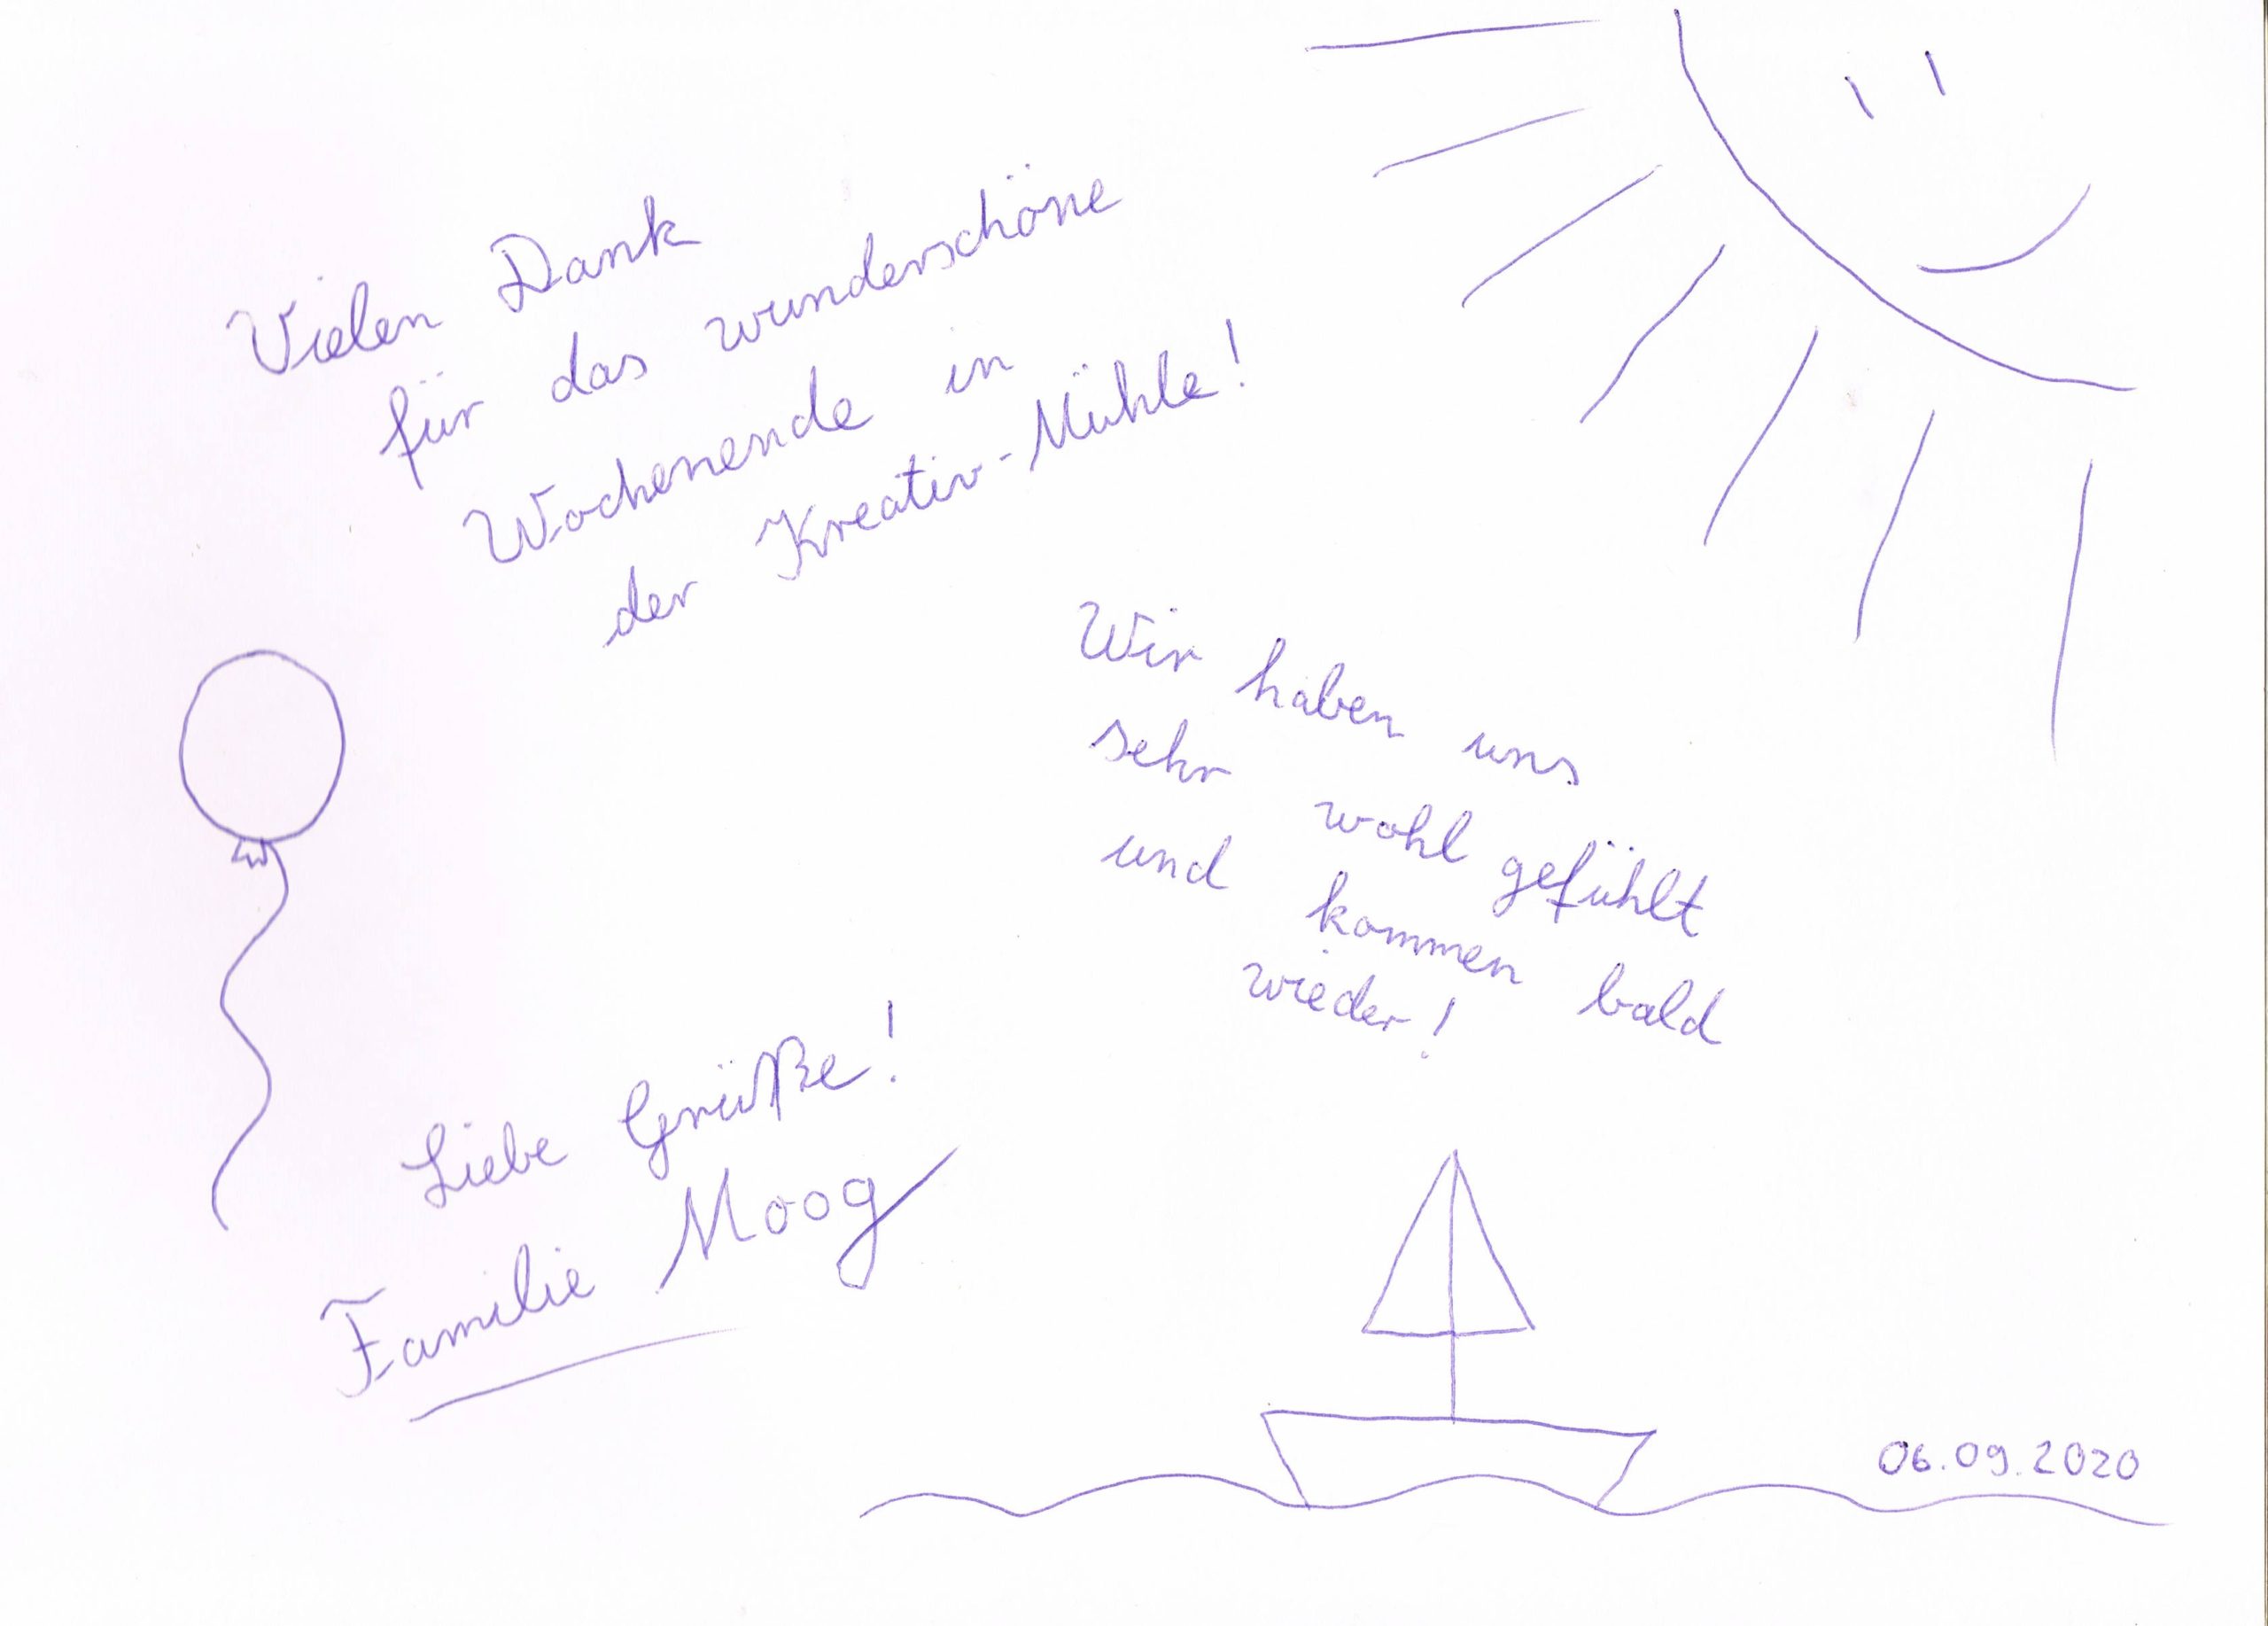 Vielen Dank
für das wunderschöne
Wochenende in
der Kreativ-Mühle!
Wir haben uns
sehr wohl gefühlt
und kommen bald
wieder!
Liebe Grüße!
Familie Moog
06.09.2020